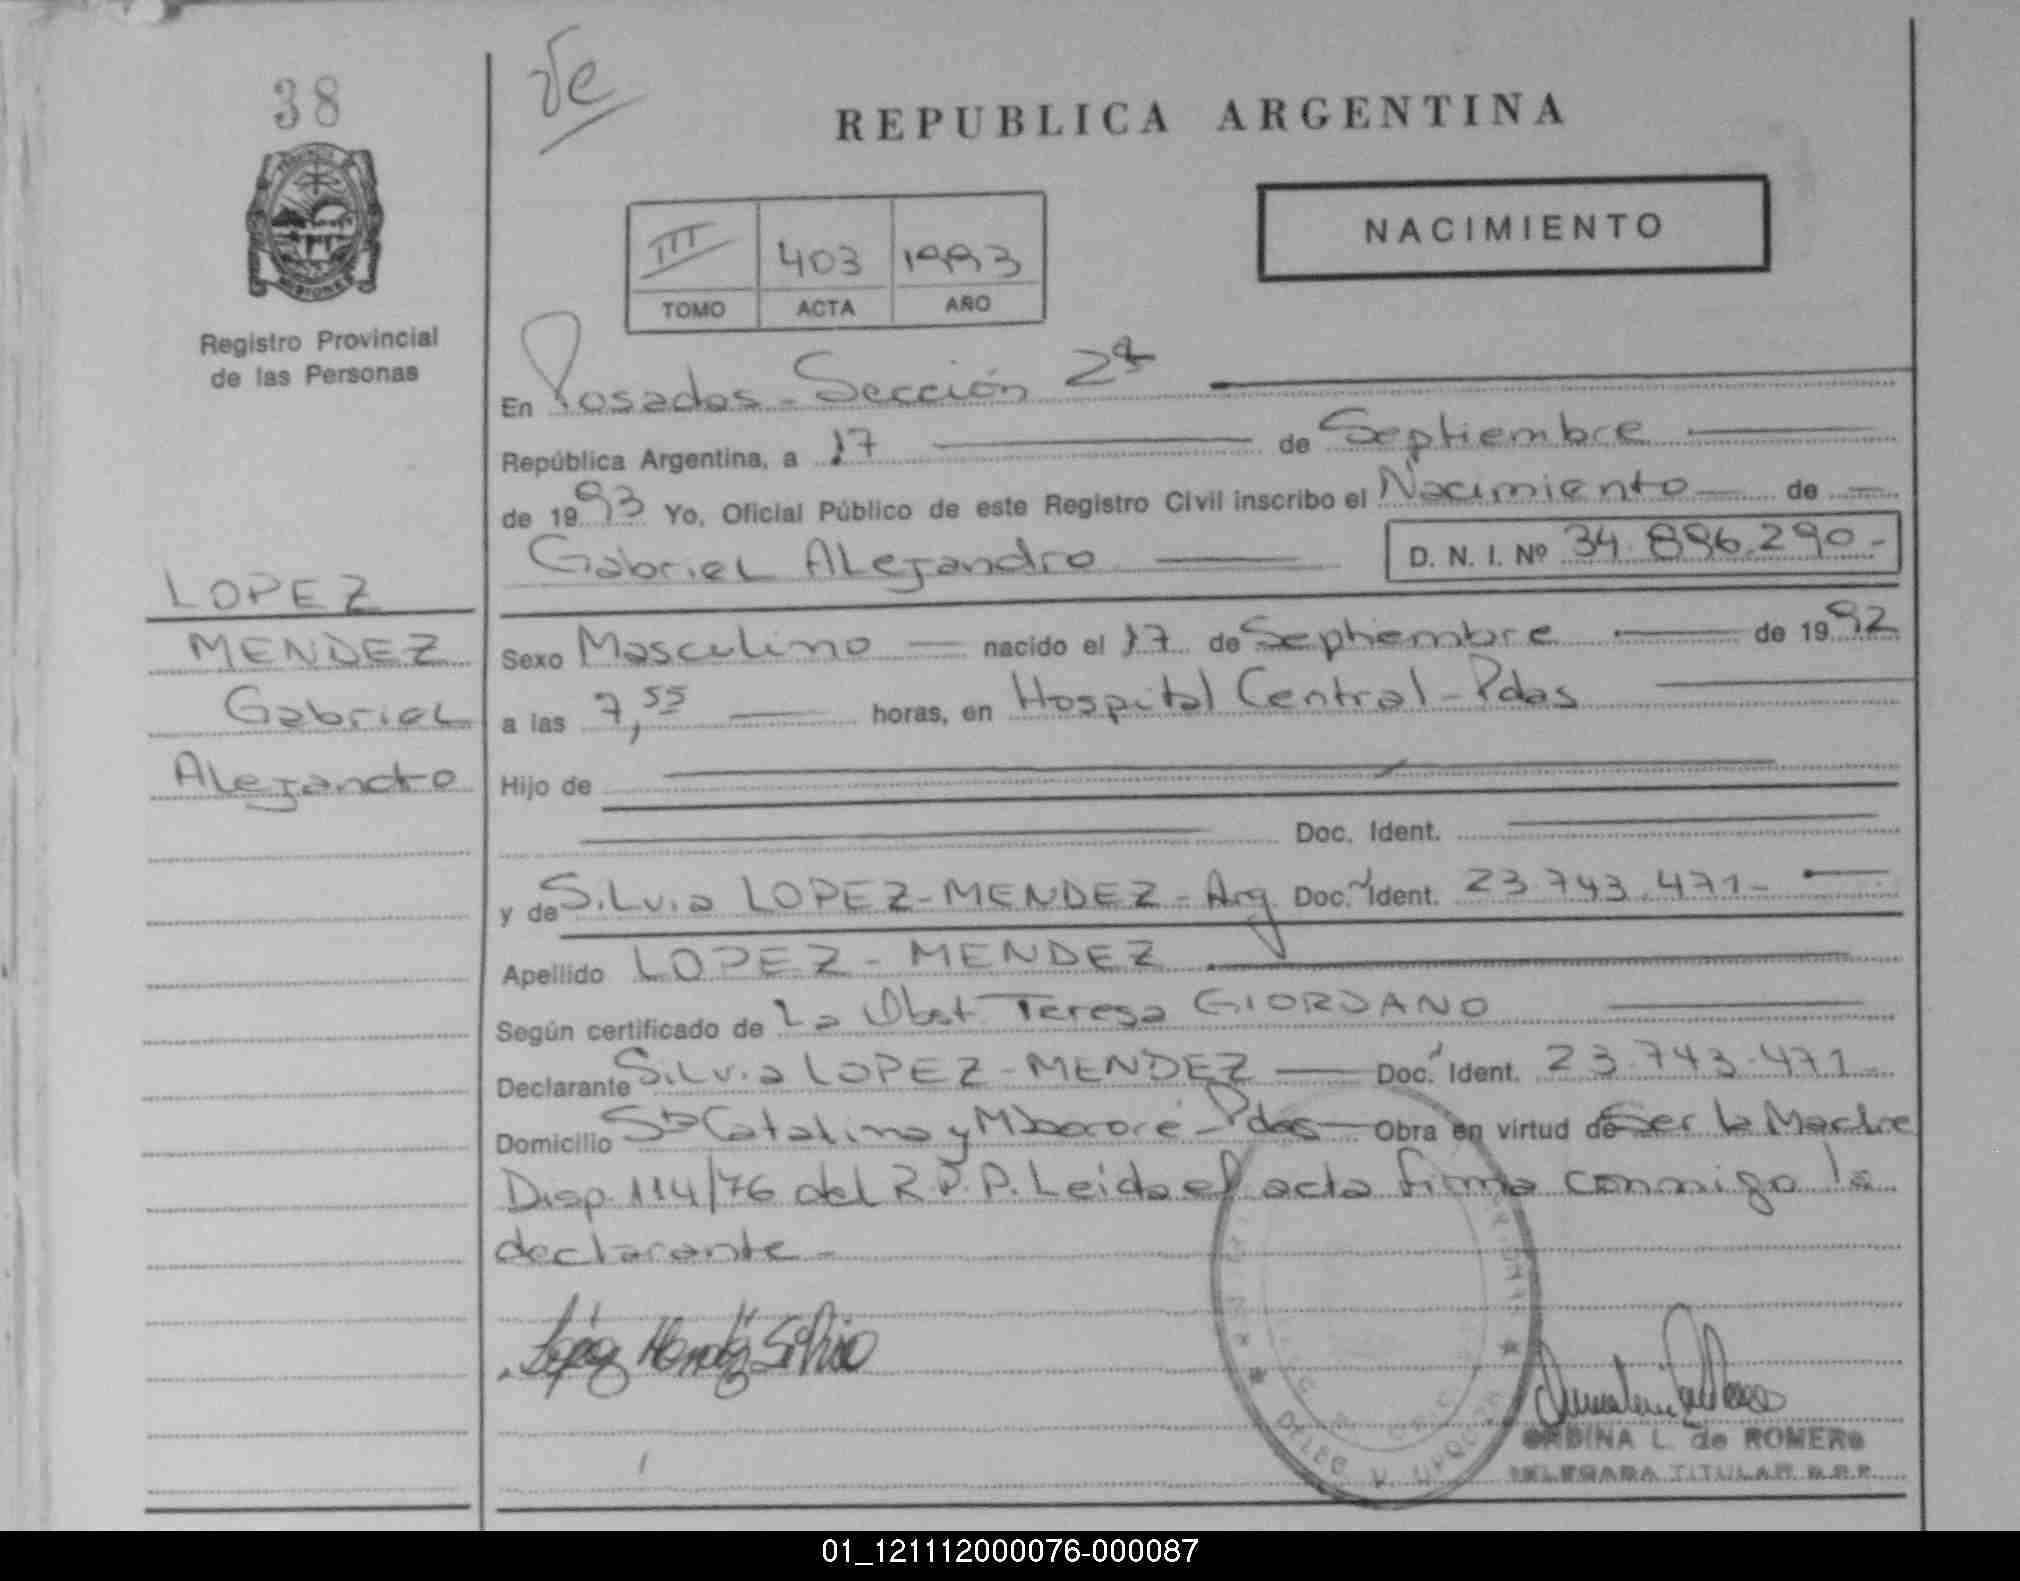 38
Registro Provincial
de las Personas
LOPEZ
MENDEZ
Gabriel
Alejandro
REPUBLICA ARGENTINA
NACIMIENTO
III 403 1993
TOMO ACTA AÑO
En Posadas - Sección 2ª
República Argentina, a 17 de Septiembre
de 1993 Yo, Oficial Público de este Registro Civil inscribo el Nacimiento de
Gabriel Alejandro D. N. I. Nº 34.896.290-
Sexo Masculino nacido el 17 de Septiembre de 1992
a las 7,55 horas, en Hospital Central - Pdas
Hijo de
Doc. Ident.
y de Silvia LOPEZ-MENDEZ - Arg. Doc. Ident. 23.743.471-
Apellido LOPEZ - MENDEZ
Según certificado de La Obst. Teresa GIORDANO
Declarante Silvia LOPEZ-MENDEZ Doc. Ident. 23.743.471-
Domicilio Sta Catalina y Mbororé - Pdas Obra en virtud de Ser la Madre
Disp. 114/76 del R.P.P. Leida el acta firma conmigo la
declarante -
López Mendez Silvia
L. de ROMERO
DELEGADA TITULAR R.P.P.
01_121112000076-000087